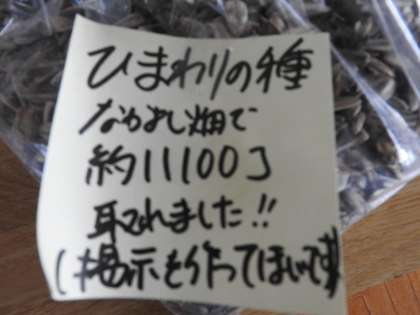 ひまわりの種
なかよし畑で
約11100コ
取れました!!
(掲示を作ってほしいです)